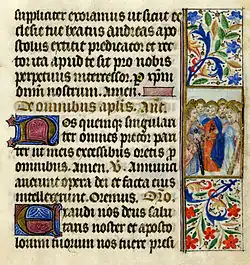 suppliciter exoramus ut sicut ec
clesie tue beatus andreas apo
stolus extitit predicator et rec
tor ita apud te sit pro nobis
perpetuus intercessor. p xpm
dnm nostrum. Amen.
De omnibus aplis. Ane.
Vos quemque singulari
ter omnes precor pari
ter ut meis excessibus oretis p
omnibus. Amen. V. Annunci
averunt opera dei et facta eius
intellexerunt. Oremus. Oro
Exaudi nos deus salu
taris noster et aposto
lorum tuorum nos tuere presi